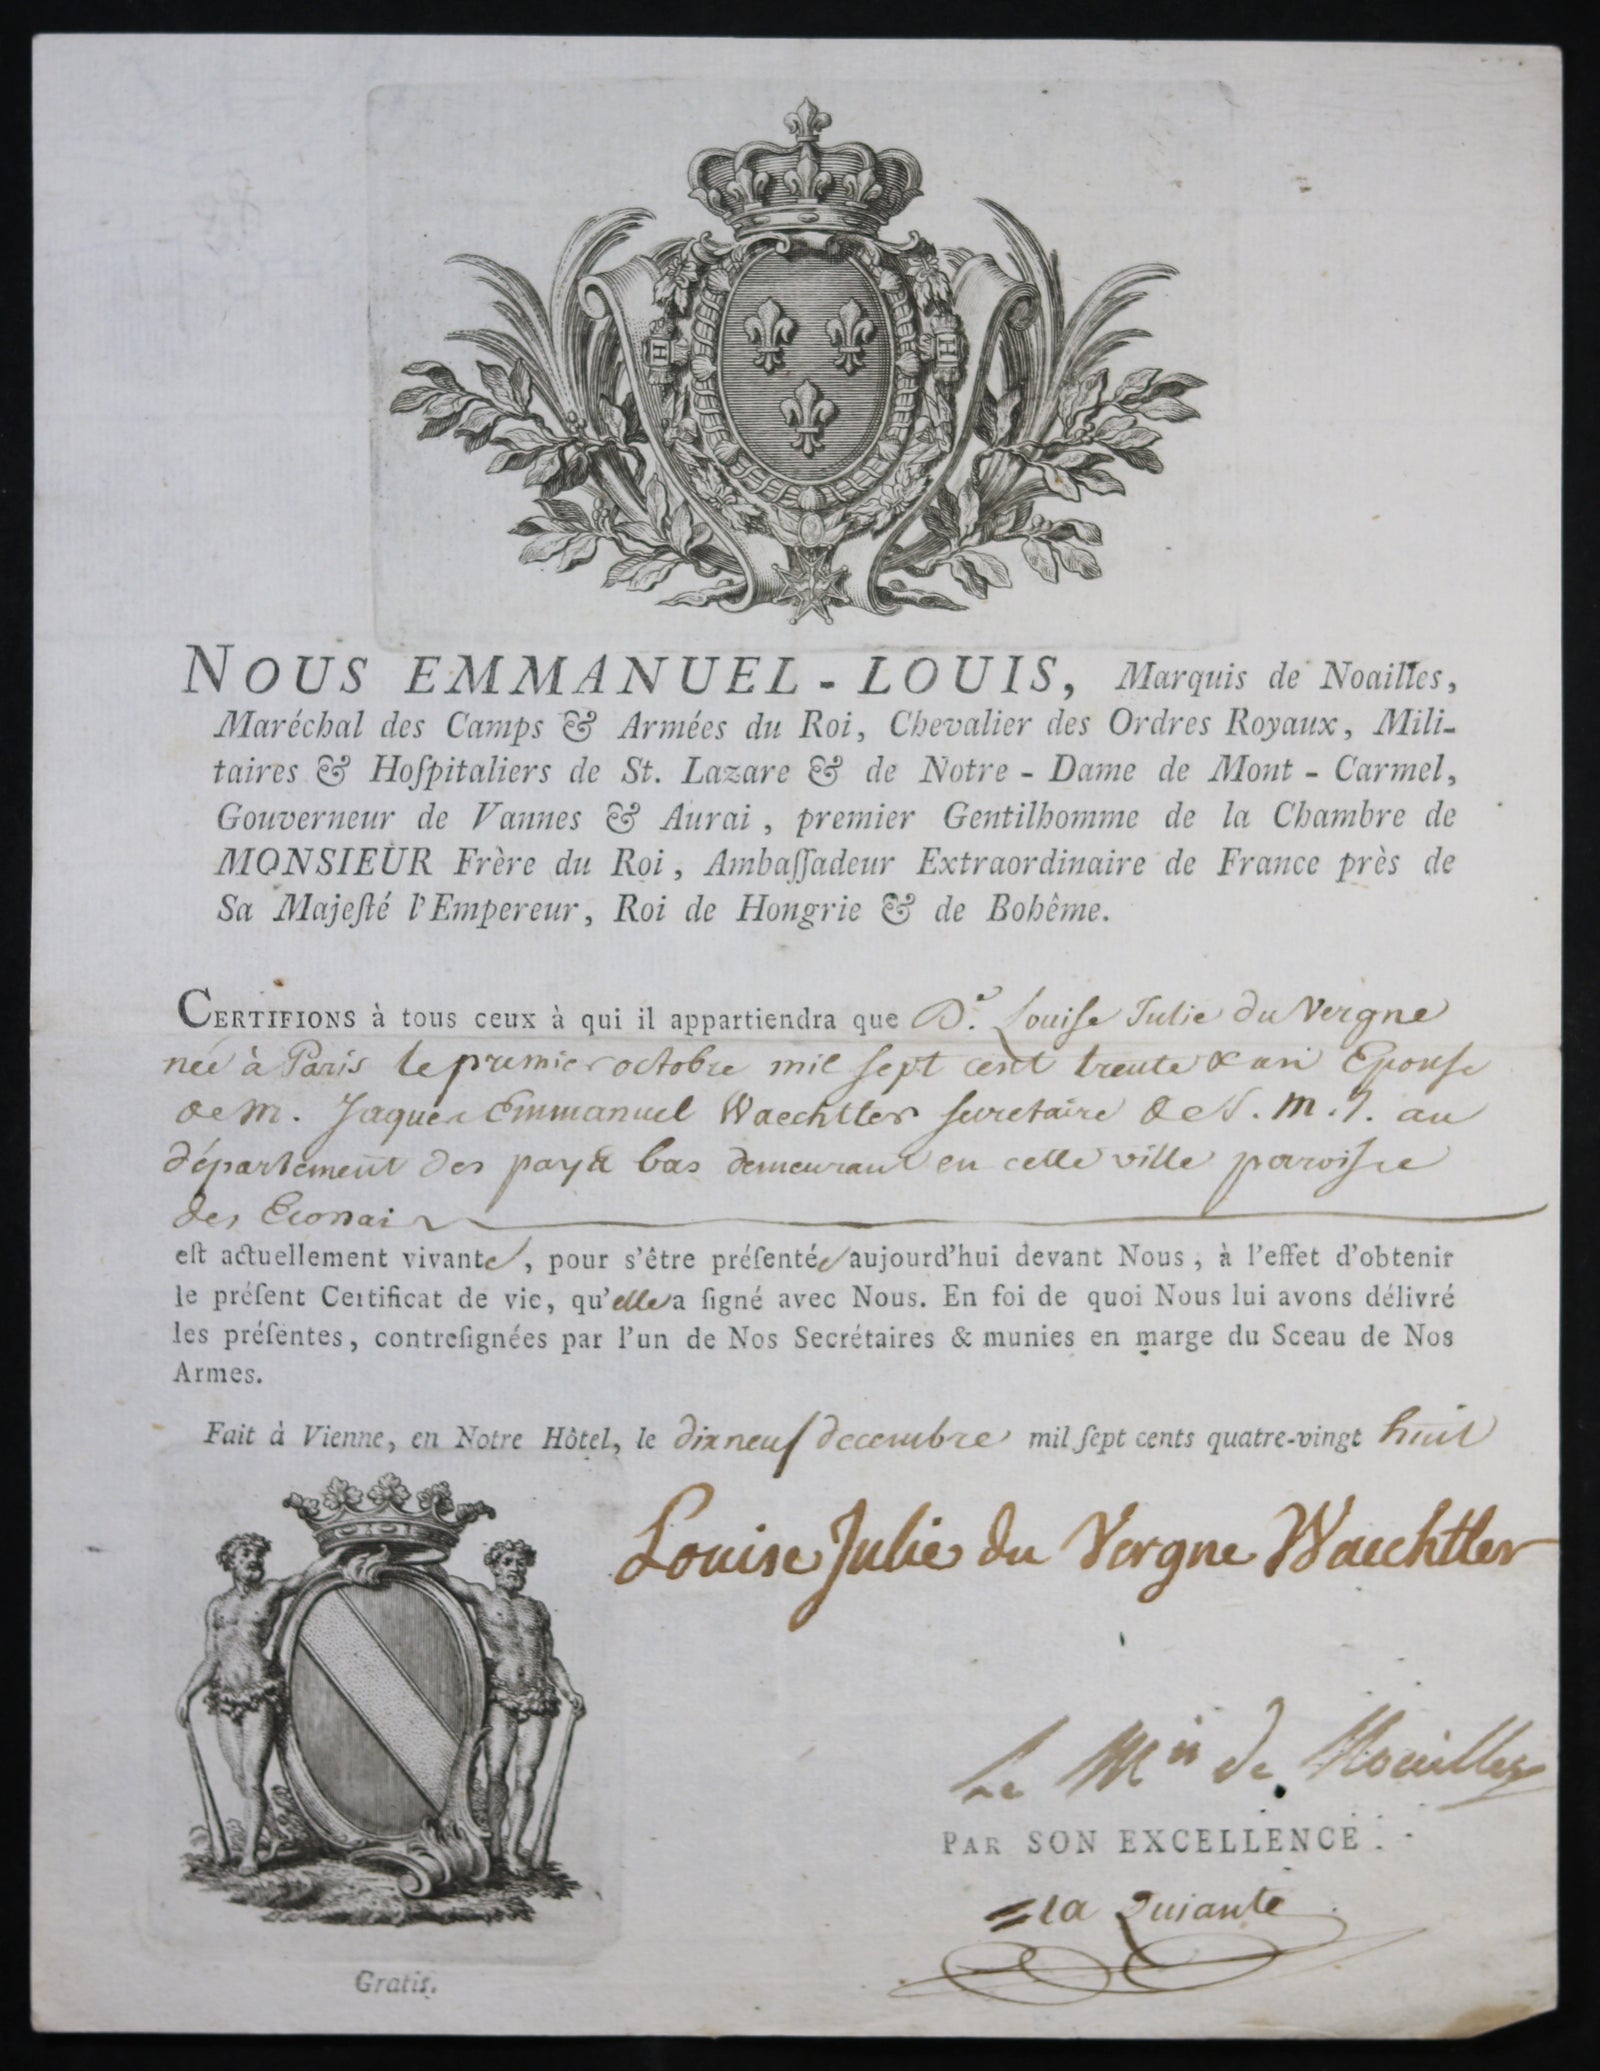 NOUS EMMANUEL-LOUIS, Marquis de Noailles,
Maréchal des Camps & Armées du Roi, Chevalier des Ordres Royaux, Mili-
taires & Hoſpitaliers de St. Lazare & de Notre-Dame de Mont-Carmel,
Gouverneur de Vannes & Aurai, premier Gentilhomme de la Chambre de
MONSIEUR Frère du Roi, Ambaſſadeur Extraordinaire de France près de
Sa Majeſté l'Empereur, Roi de Hongrie & de Bohême.
CERTIFIONS à tous ceux à qui il appartiendra que D.e Louise Julie du Vergne
née à Paris le premier octobre mil sept cent trente & un Epouse
de M. Jaques Emmanuel Waechtler secretaire de S. M. I. au
département des pays bas demeurant en cette ville paroisse
des Ecossais
eſt actuellement vivante, pour s'être préſentée aujourd'hui devant Nous, à l'effet d'obtenir
le préſent Certificat de vie, qu'elle a ſigné avec Nous. En foi de quoi Nous lui avons délivré
les préſentes, contreſignées par l'un de Nos Secrétaires & munies en marge du Sceau de Nos
Armes.
Fait à Vienne, en Notre Hôtel, le dix neuf decembre mil ſept cents quatre-vingt huit
Louise Julie du Vergne Waechtler
Le Mis de Noailles
PAR SON EXCELLENCE.
H
H
Gratis.